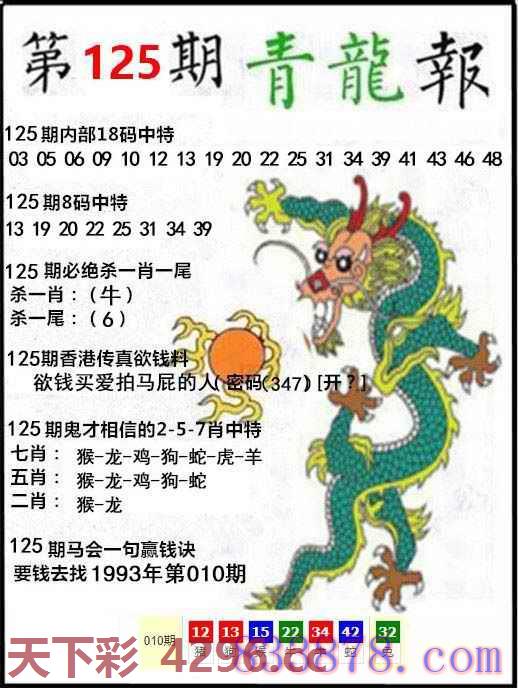 第125期青龍報
125期内部18码中特
03 05 06 09 10 12 13 19 20 22 25 31 34 39 41 43 46 48
125期8码中特
13 19 20 22 25 31 34 39
125期必绝杀一肖一尾
杀一肖：(牛)
杀一尾：(6)
125期香港传真欲钱料
欲钱买爱拍马屁的人(密码(347)[开？]
125期鬼才相信的2-5-7肖中特
七肖：猴-龙-鸡-狗-蛇-虎-羊
五肖：猴-龙-鸡-狗-蛇
二肖：猴-龙
125期马会一句赢钱诀
要钱去找1993年第010期
010期 12 13 15 22 34 42 32
猪 猴 牛 蛇 兔
天下彩 4296.cc